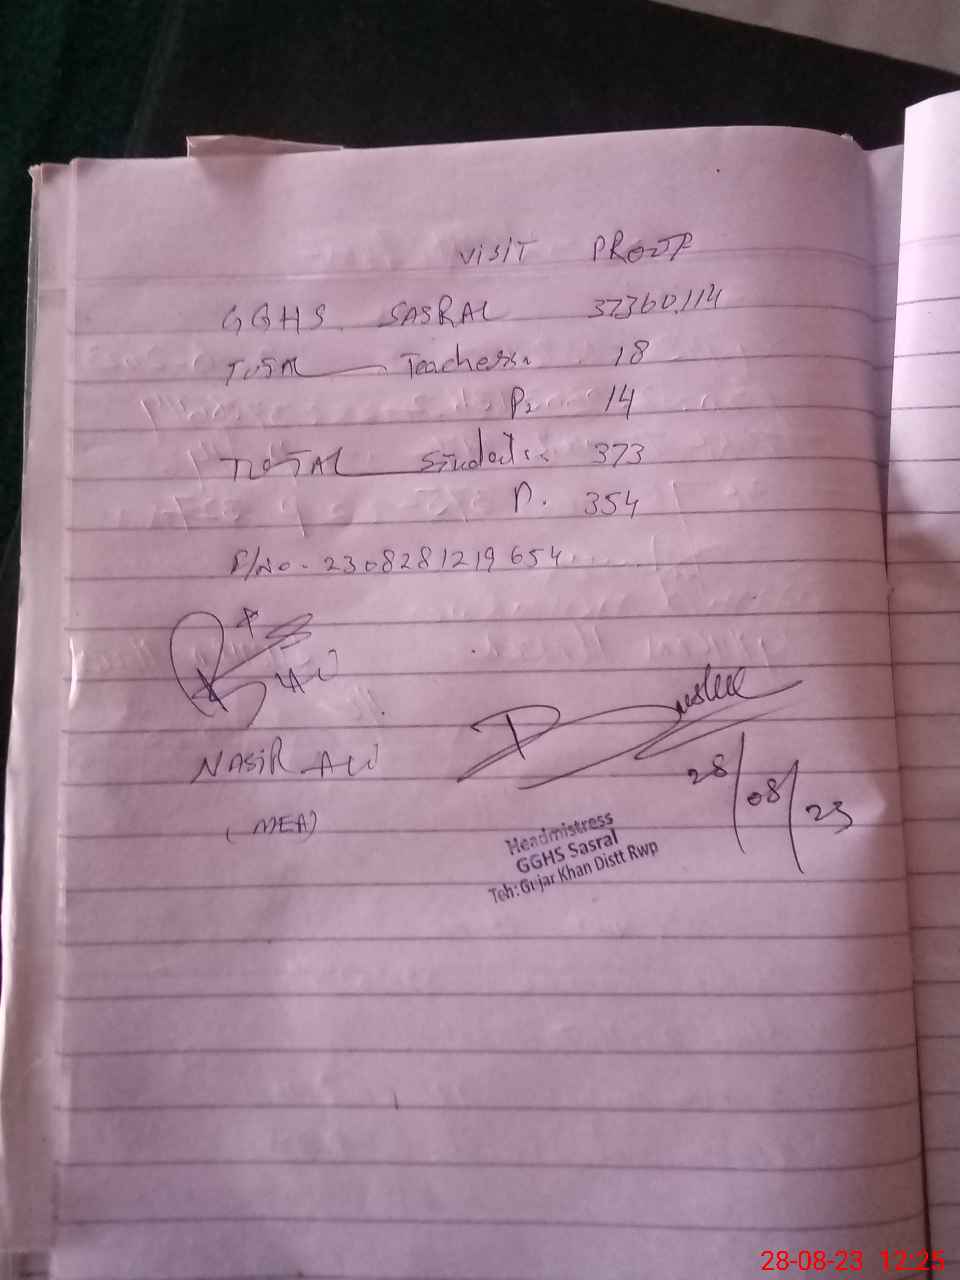 VISIT PROOF
GGHS. SASRAL 37360114
TOTAL Teachers. 18
P. 14
TOTAL Students. 373
P. 354
P/No - 2308281219654
NASIR ALI
(MEA)
28/08/23
Headmistress
GGHS Sasral
Teh: Gujar Khan Distt Rwp
28-08-23 12:25